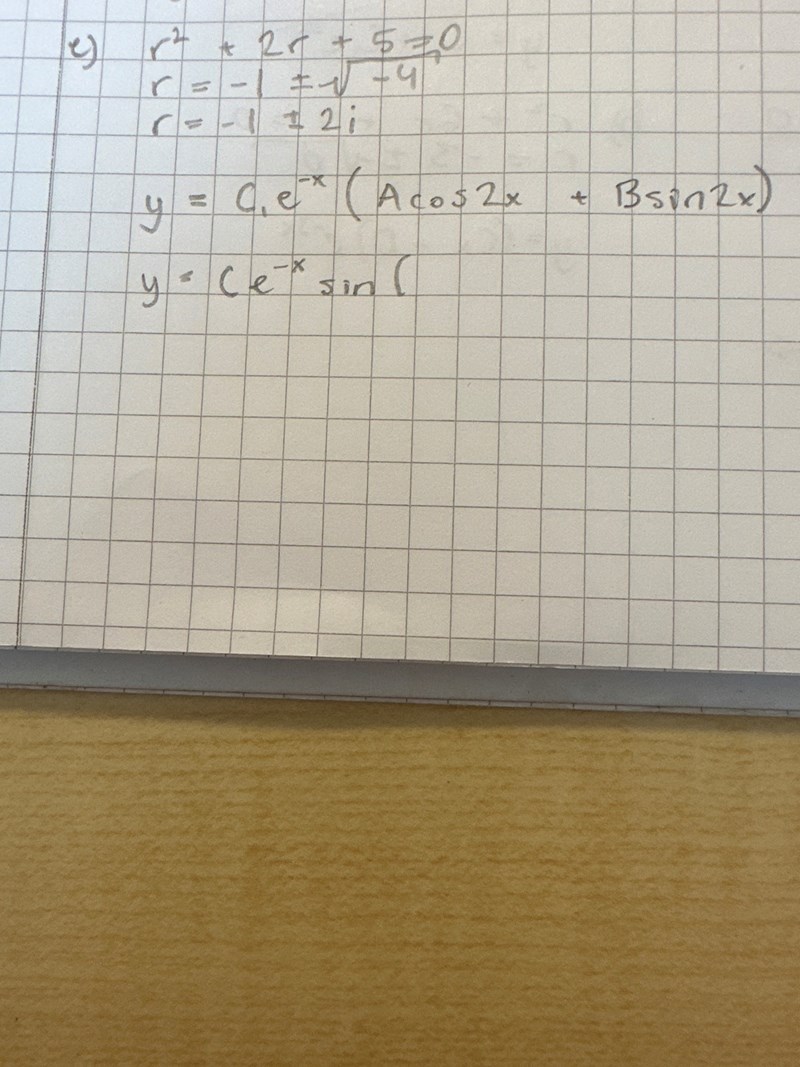 e) r² + 2r + 5 = 0
r = -1 ± √-4
r = -1 ± 2i
y = C₁e⁻ˣ (Acos2x + Bsin2x)
y = Ce⁻ˣ sin (